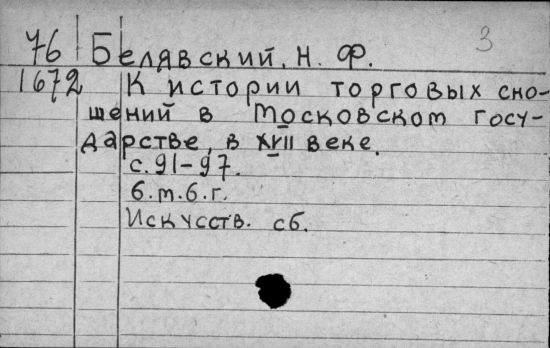 76 Белявский, Н. Ф. 3
1672 К истории торговых сно-
шений в Московском госу-
дарстве, в XVII веке.
с. 91-97.
б.м.б.г.
Искусств. сб.